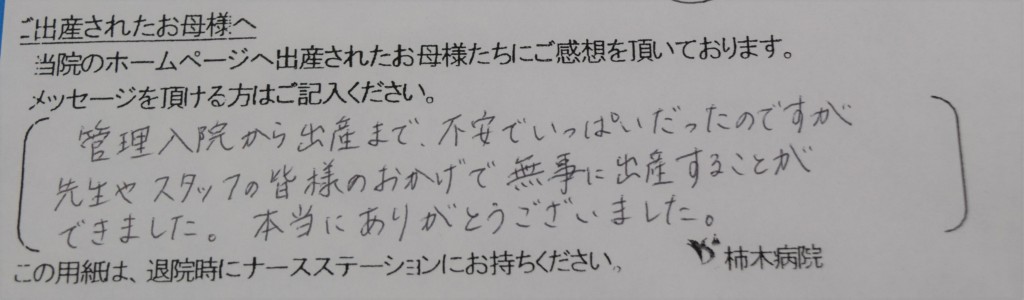 ご出産されたお母様へ
当院のホームページへ出産されたお母様たちにご感想を頂いております。
メッセージを頂ける方はご記入ください。
管理入院から出産まで、不安でいっぱいだったのですが
先生やスタッフの皆様のおかげで無事に出産することが
できました。本当にありがとうございました。
この用紙は、退院時にナースステーションにお持ちください。
柿木病院